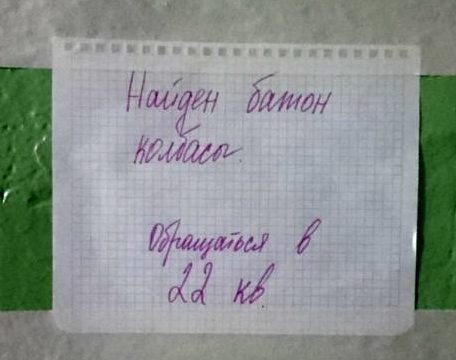 Найден батон
колбасы.
Обращаться в
22 кв.